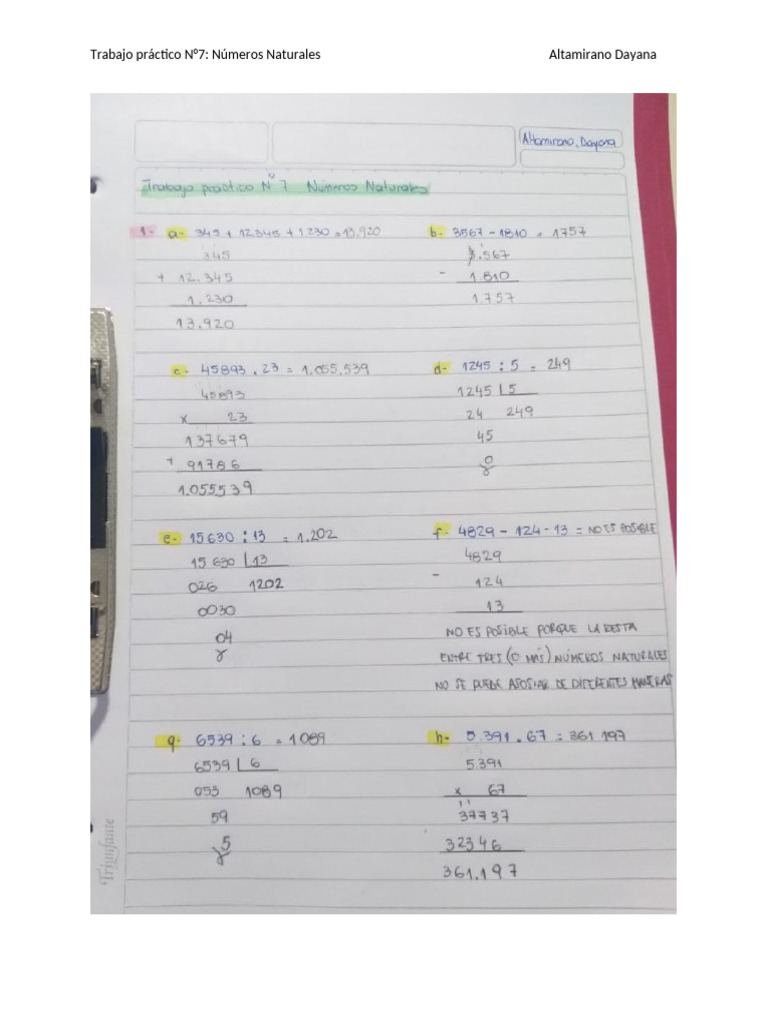 Trabajo práctico N°7: Números Naturales Altamirano Dayana
Altamirano, Dayana
Trabajo práctico N° 7 Números Naturales
1- a- 345 + 12.345 + 1.230 = 13.920
345
+ 12.345
1.230
13.920
b- 3567 - 1810 = 1757
3.567
- 1.810
1.757
c- 45893 . 23 = 1.055.539
45893
x 23
137679
+ 91786
1.055539
d- 1245 : 5 = 249
1245 5
24 249
45
0
r
e- 15630 : 13 = 1.202
15 630 13
026 1202
0030
04
r
f- 4829 - 124 - 13 = NO ES POSIBLE
4829
- 124
13
NO ES POSIBLE PORQUE LA RESTA
ENTRE TRES (O MÁS) NÚMEROS NATURALES
NO SE PUEDE ASOSIAR DE DIFERENTES MANERAS
g- 6539 : 6 = 1089
6539 6
053 1089
59
5
r
h- 5.391 . 67 = 361 197
5.391
x 67
11
37737
32346
361.197
Triunfante